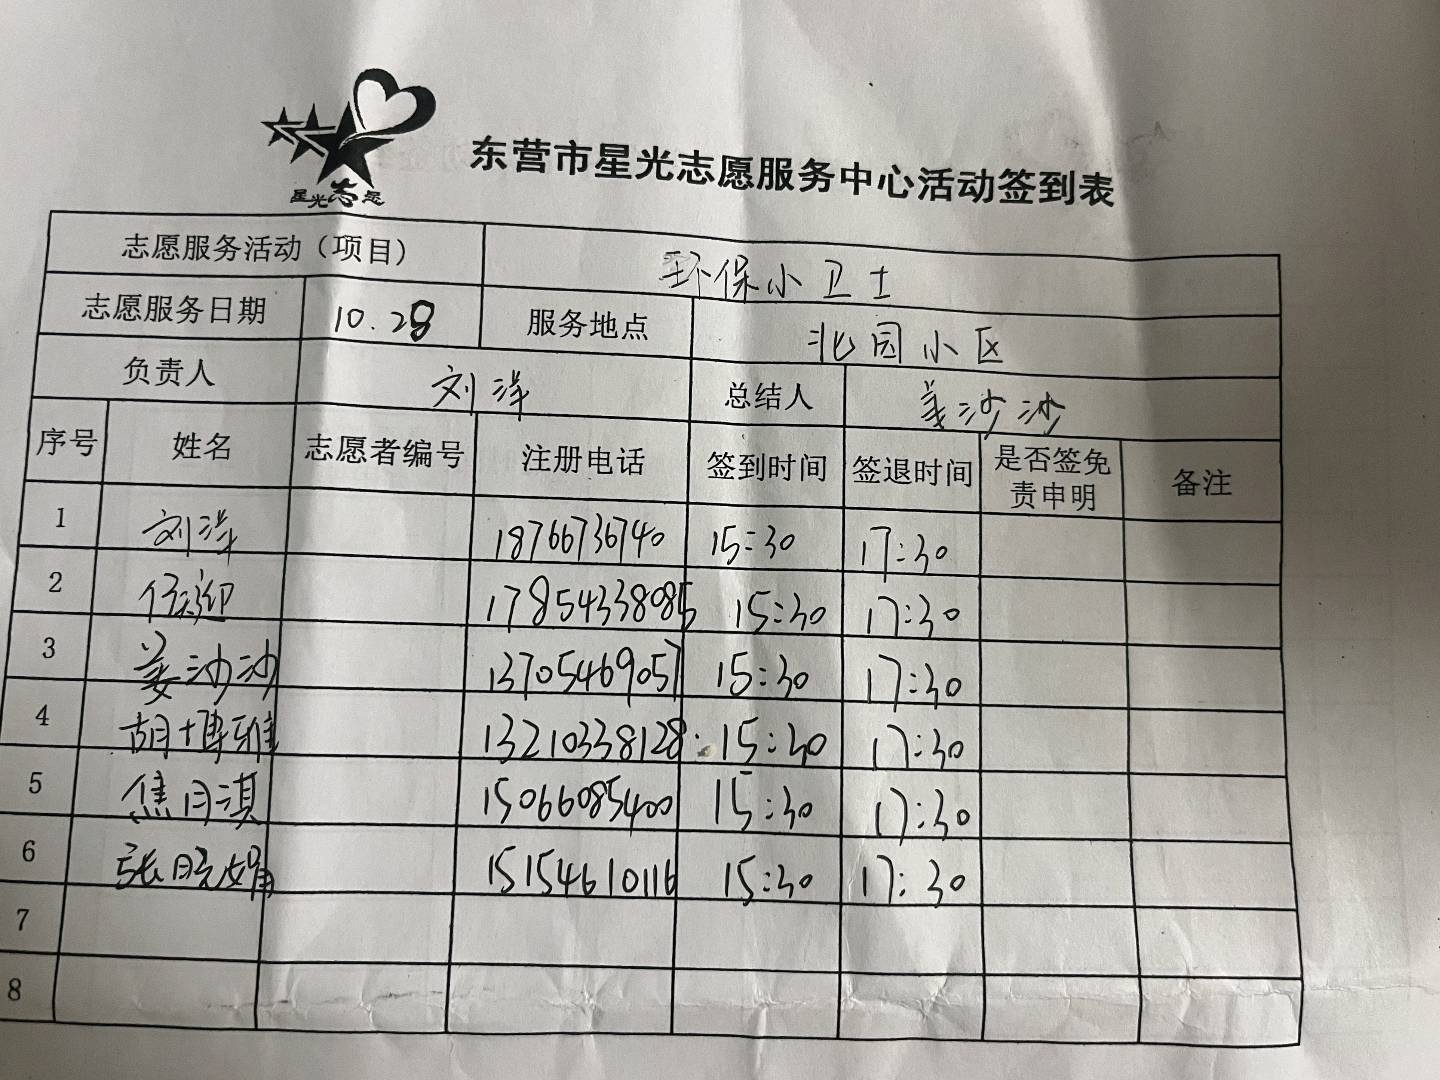 星光志愿
东营市星光志愿服务中心活动签到表
志愿服务活动（项目） 环保小卫士
志愿服务日期 10.28 服务地点 北园小区
负责人 刘洋 总结人 姜沙沙
序号 姓名 志愿者编号 注册电话 签到时间 签退时间 是否签免责申明 备注
1 刘洋 18766736740 15:30 17:30
2 17854338085 15:30 17:30
3 姜沙沙 13705469057 15:30 17:30
4 胡博雅 13210338128 15:30 17:30
5 焦月淇 15066085400 15:30 17:30
6 张晓娟 15154610116 15:30 17:30
7
8